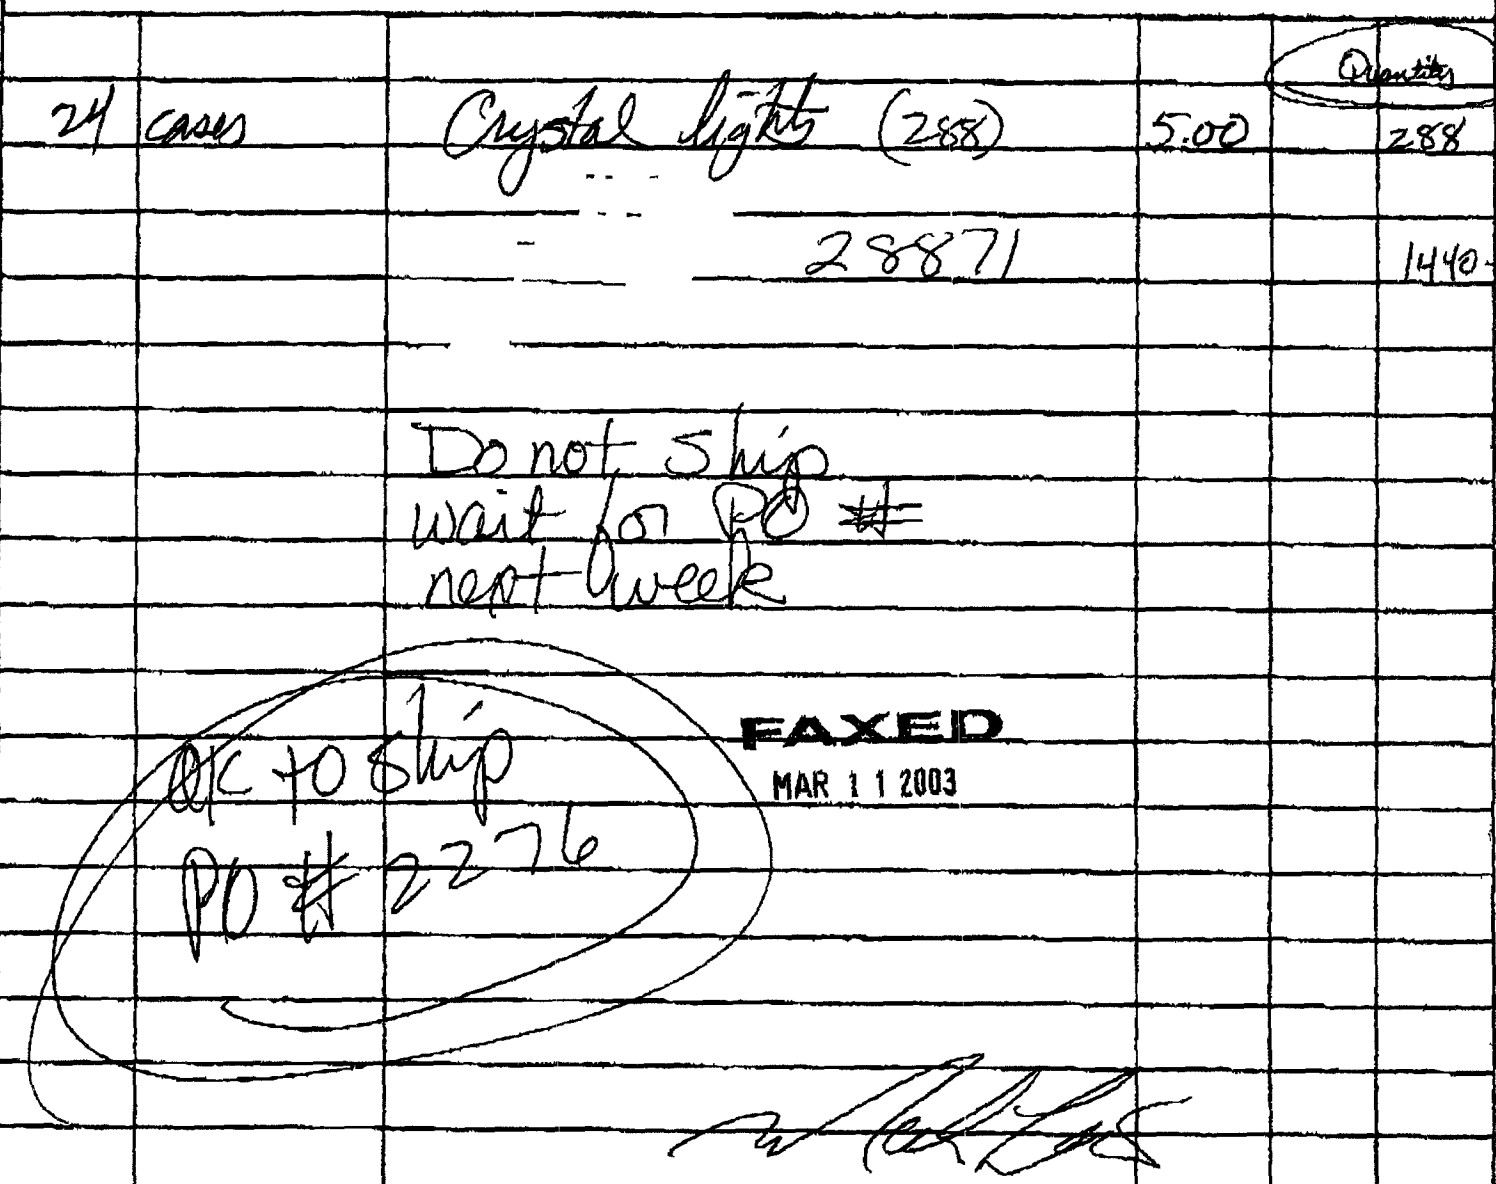 Quantity
24 cases Crystal lights (288) 5.00 288
28871 1440-
Do not ship
wait for PO #
next week
OK to ship
PO # 2276
FAXED
MAR 11 2003